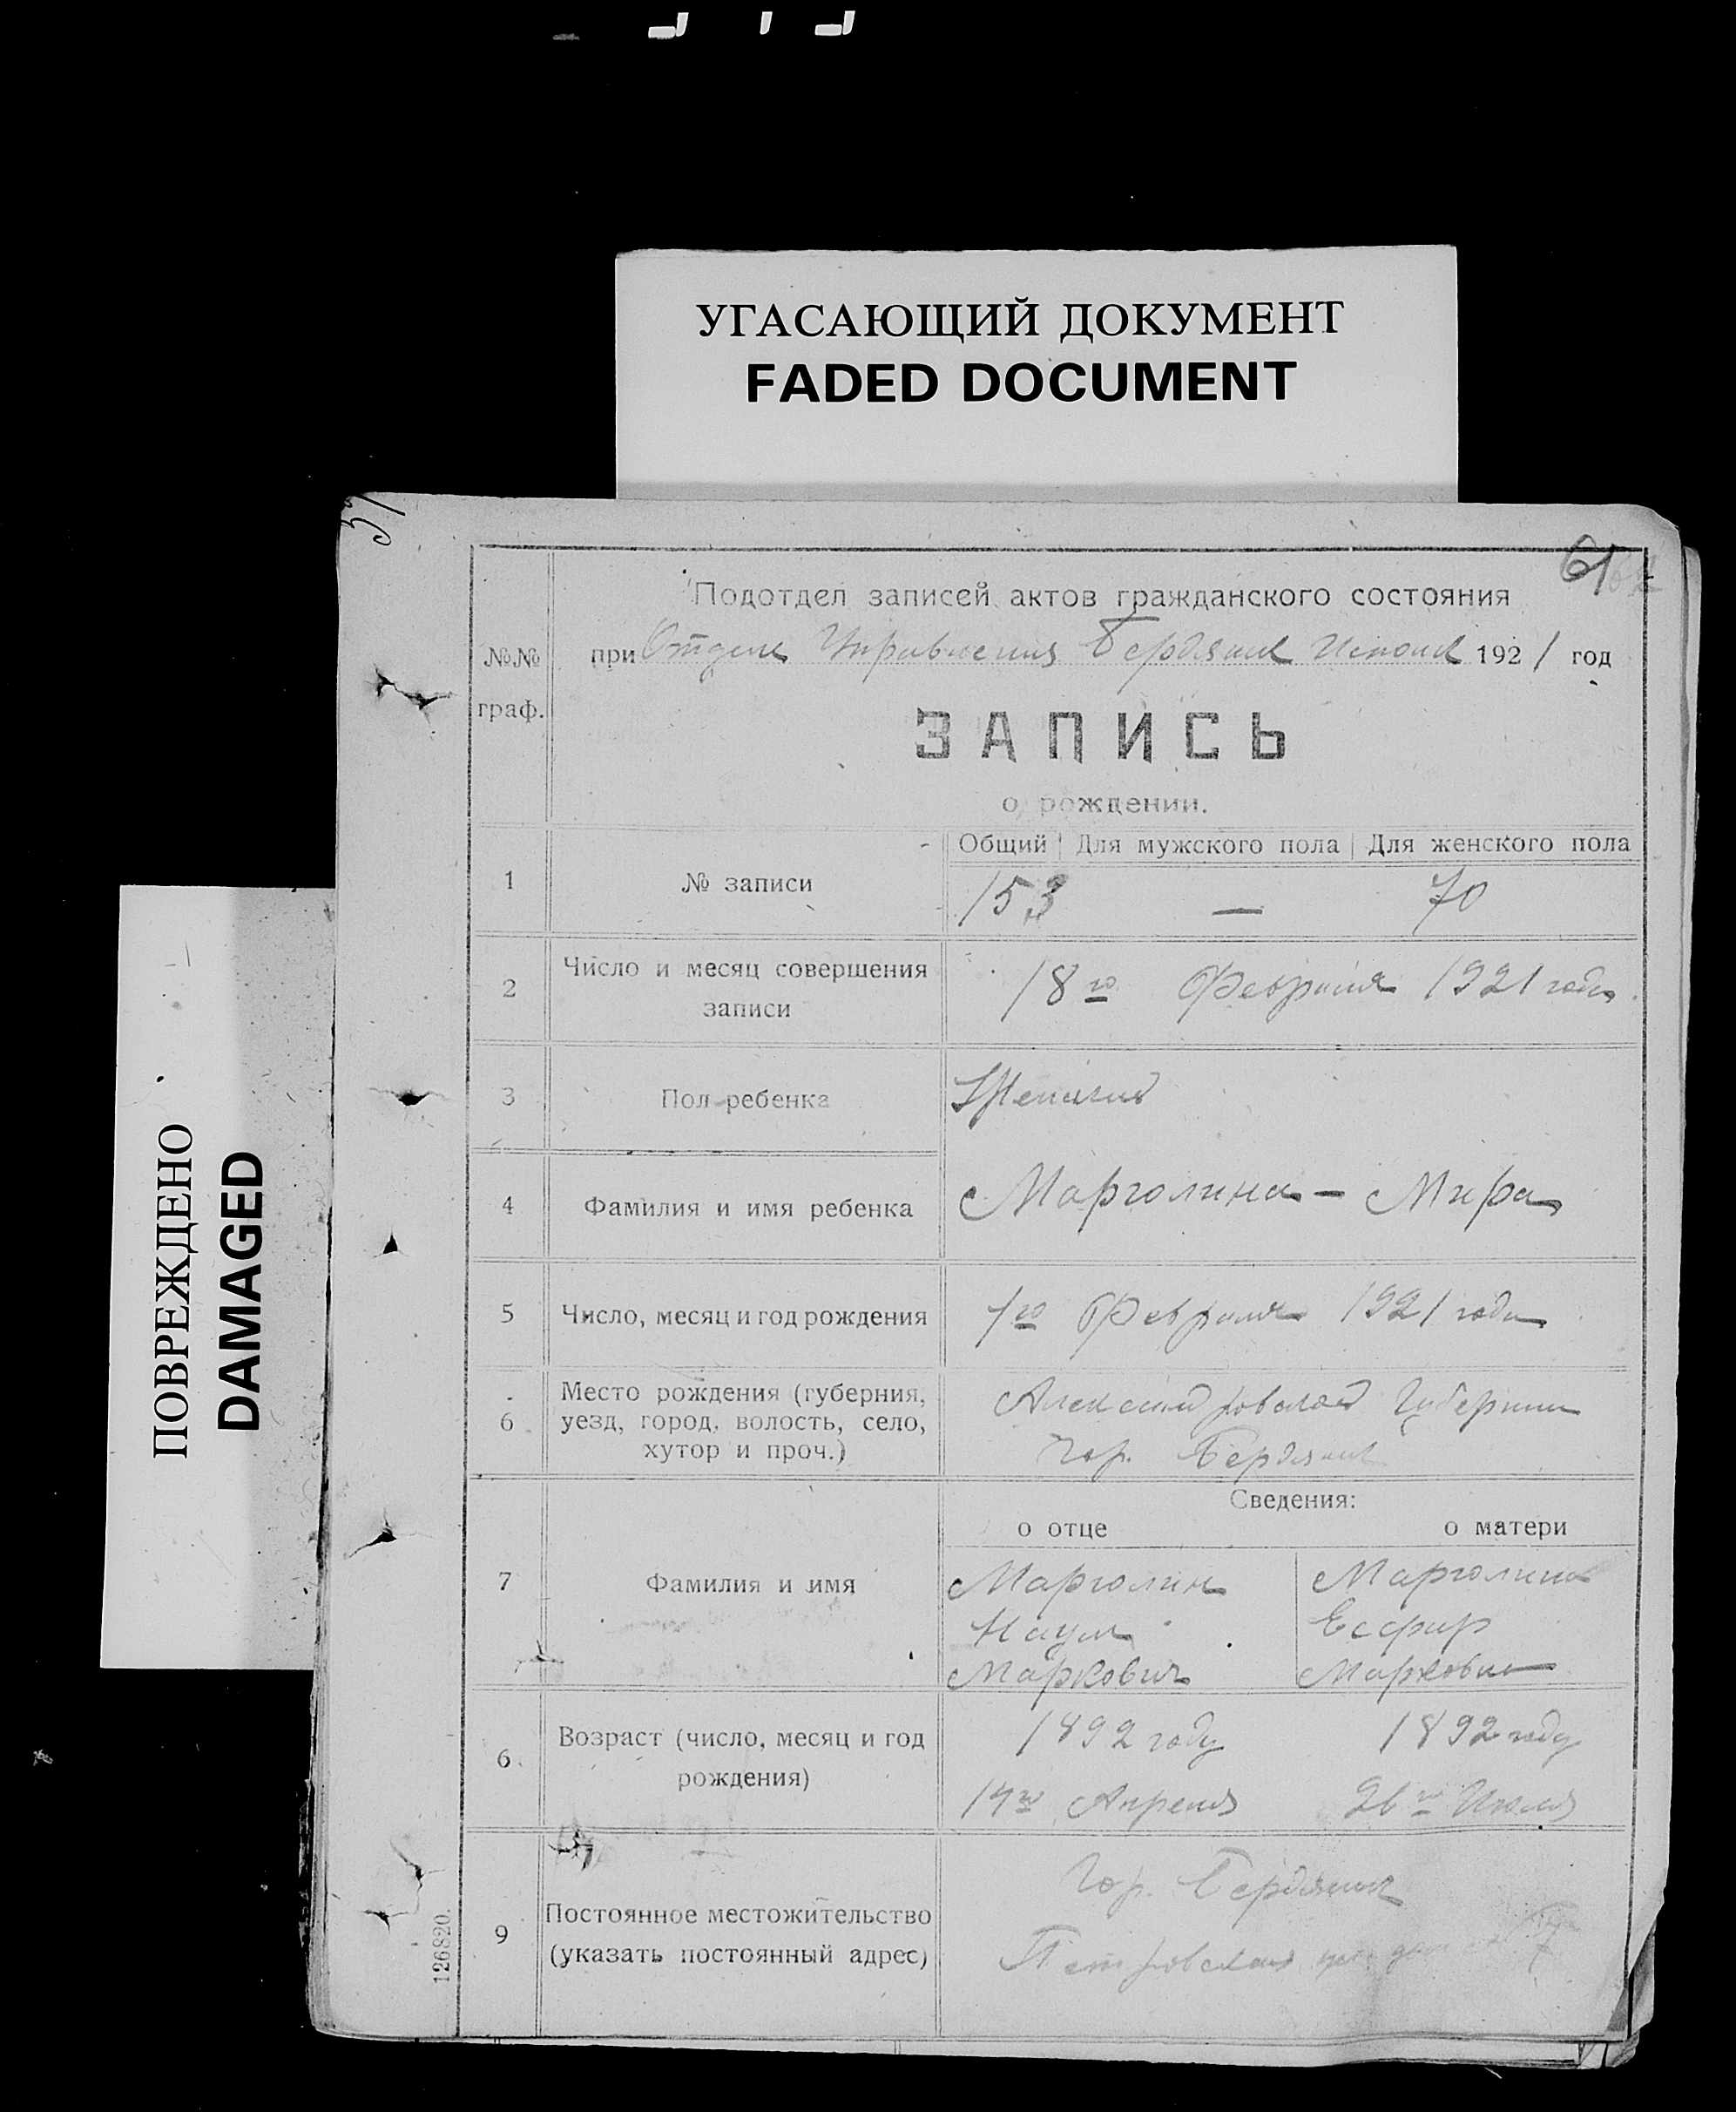 УГАСАЮЩИЙ ДОКУМЕНТ
FADED DOCUMENT
ПОВРЕЖДЕНО
DAMAGED
37
61
Подотдел записей актов гражданского состояния
№№ граф.
при Отделе Управления Бердянск 1921 год
ЗАПИСЬ
о рождении.
Общий Для мужского пола Для женского пола
1 № записи 153 — 70
2 Число и месяц совершения записи 18го Февраля 1921 года
3 Пол ребенка Женский
4 Фамилия и имя ребенка Марголина - Мира
5 Число, месяц и год рождения 1го Февраля 1921 года
6 Место рождения (губерния, уезд, город, волость, село, хутор и проч.) Александровской Губернии
гор. Бердянск
Сведения:
о отце о матери
7 Фамилия и имя Марголин Марголина
Наум Есфир
Маркович Марковна
6. Возраст (число, месяц и год рождения) 1892 году 1892 году
Апреля 26го
9 Постоянное местожительство (указать постоянный адрес) Гор. Бердянск
Петровская
126820.